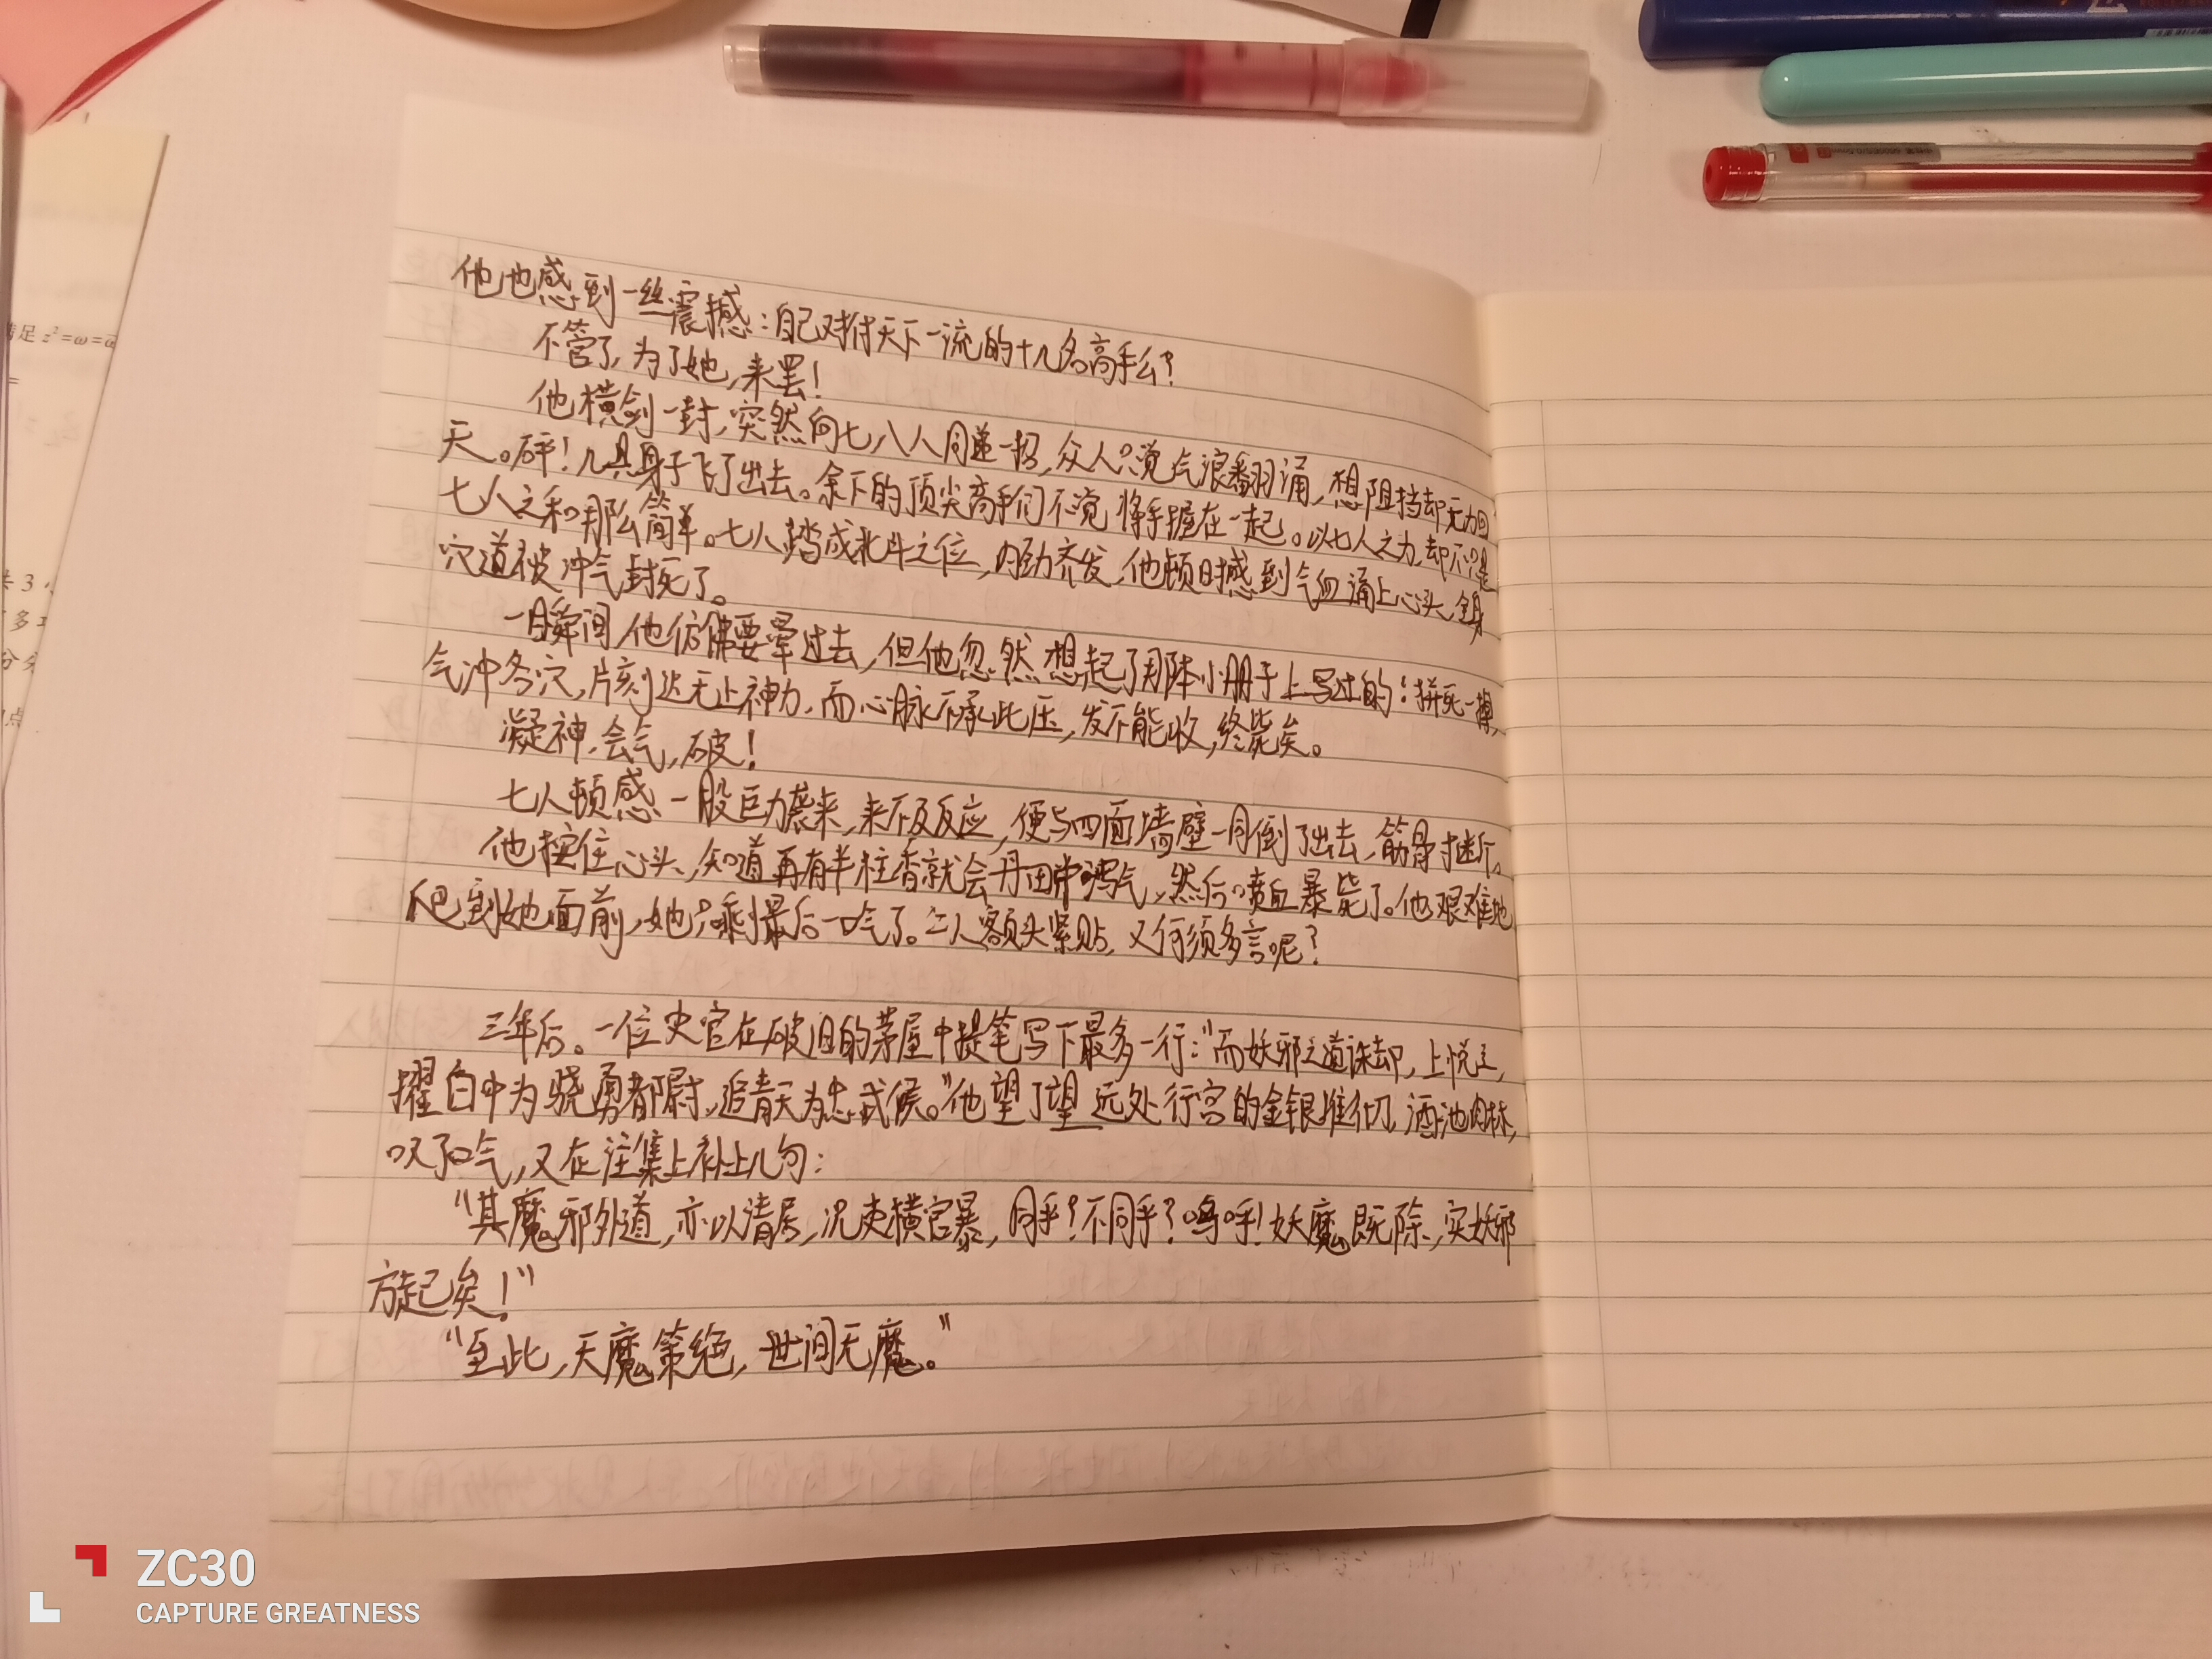 他也感到一丝震撼：自己对付天下一流的十几名高手么？
不管了，为了她，来罢！
他横剑一封，突然向七八人同递一招，众人只觉气浪翻涌，想阻挡却无力回
天。砰！几具身子飞了出去。余下的顶尖高手们不觉将手握在一起。以七人之力，却不只是
七人之和那么简单。七人踏成北斗之位，内劲齐发，他顿时感到气血涌上心头，全身
穴道被冲气封死了。
一瞬间，他仿佛要晕过去，但他忽然想起了那本小册子上写过的：拼死一搏，
气冲各穴，片刻达无上神力，而心脉不承此压，发不能收，终毙矣。
凝神，会气，破！
七人顿感一股巨力袭来，来不及反应，便与四面墙壁一同倒了出去，筋骨寸断。
他按住心头，知道再有半柱香就会丹田泻气，然后喷血暴毙了。他艰难地
爬到她面前，她只剩最后一口气了。二人额头紧贴，又何须多言呢？
三年后。一位史官在破旧的茅屋中提笔写下最多一行："而妖邪之道诛却，上悦之，
擢白中为骁勇都尉，追青天为忠武侯。"他望了望远处行宫的金银堆彻，酒池肉林，
叹了口气，又在注集上补上几句：
"其魔邪外道，亦以清居，况吏横官暴，同乎？不同乎？呜呼！妖魔既除，实妖邪
方起矣！"
"至此，天魔策绝，世间无魔。"
满足z²=ω=ω̄
=
共3
多
分
点
ZC30
CAPTURE GREATNESS